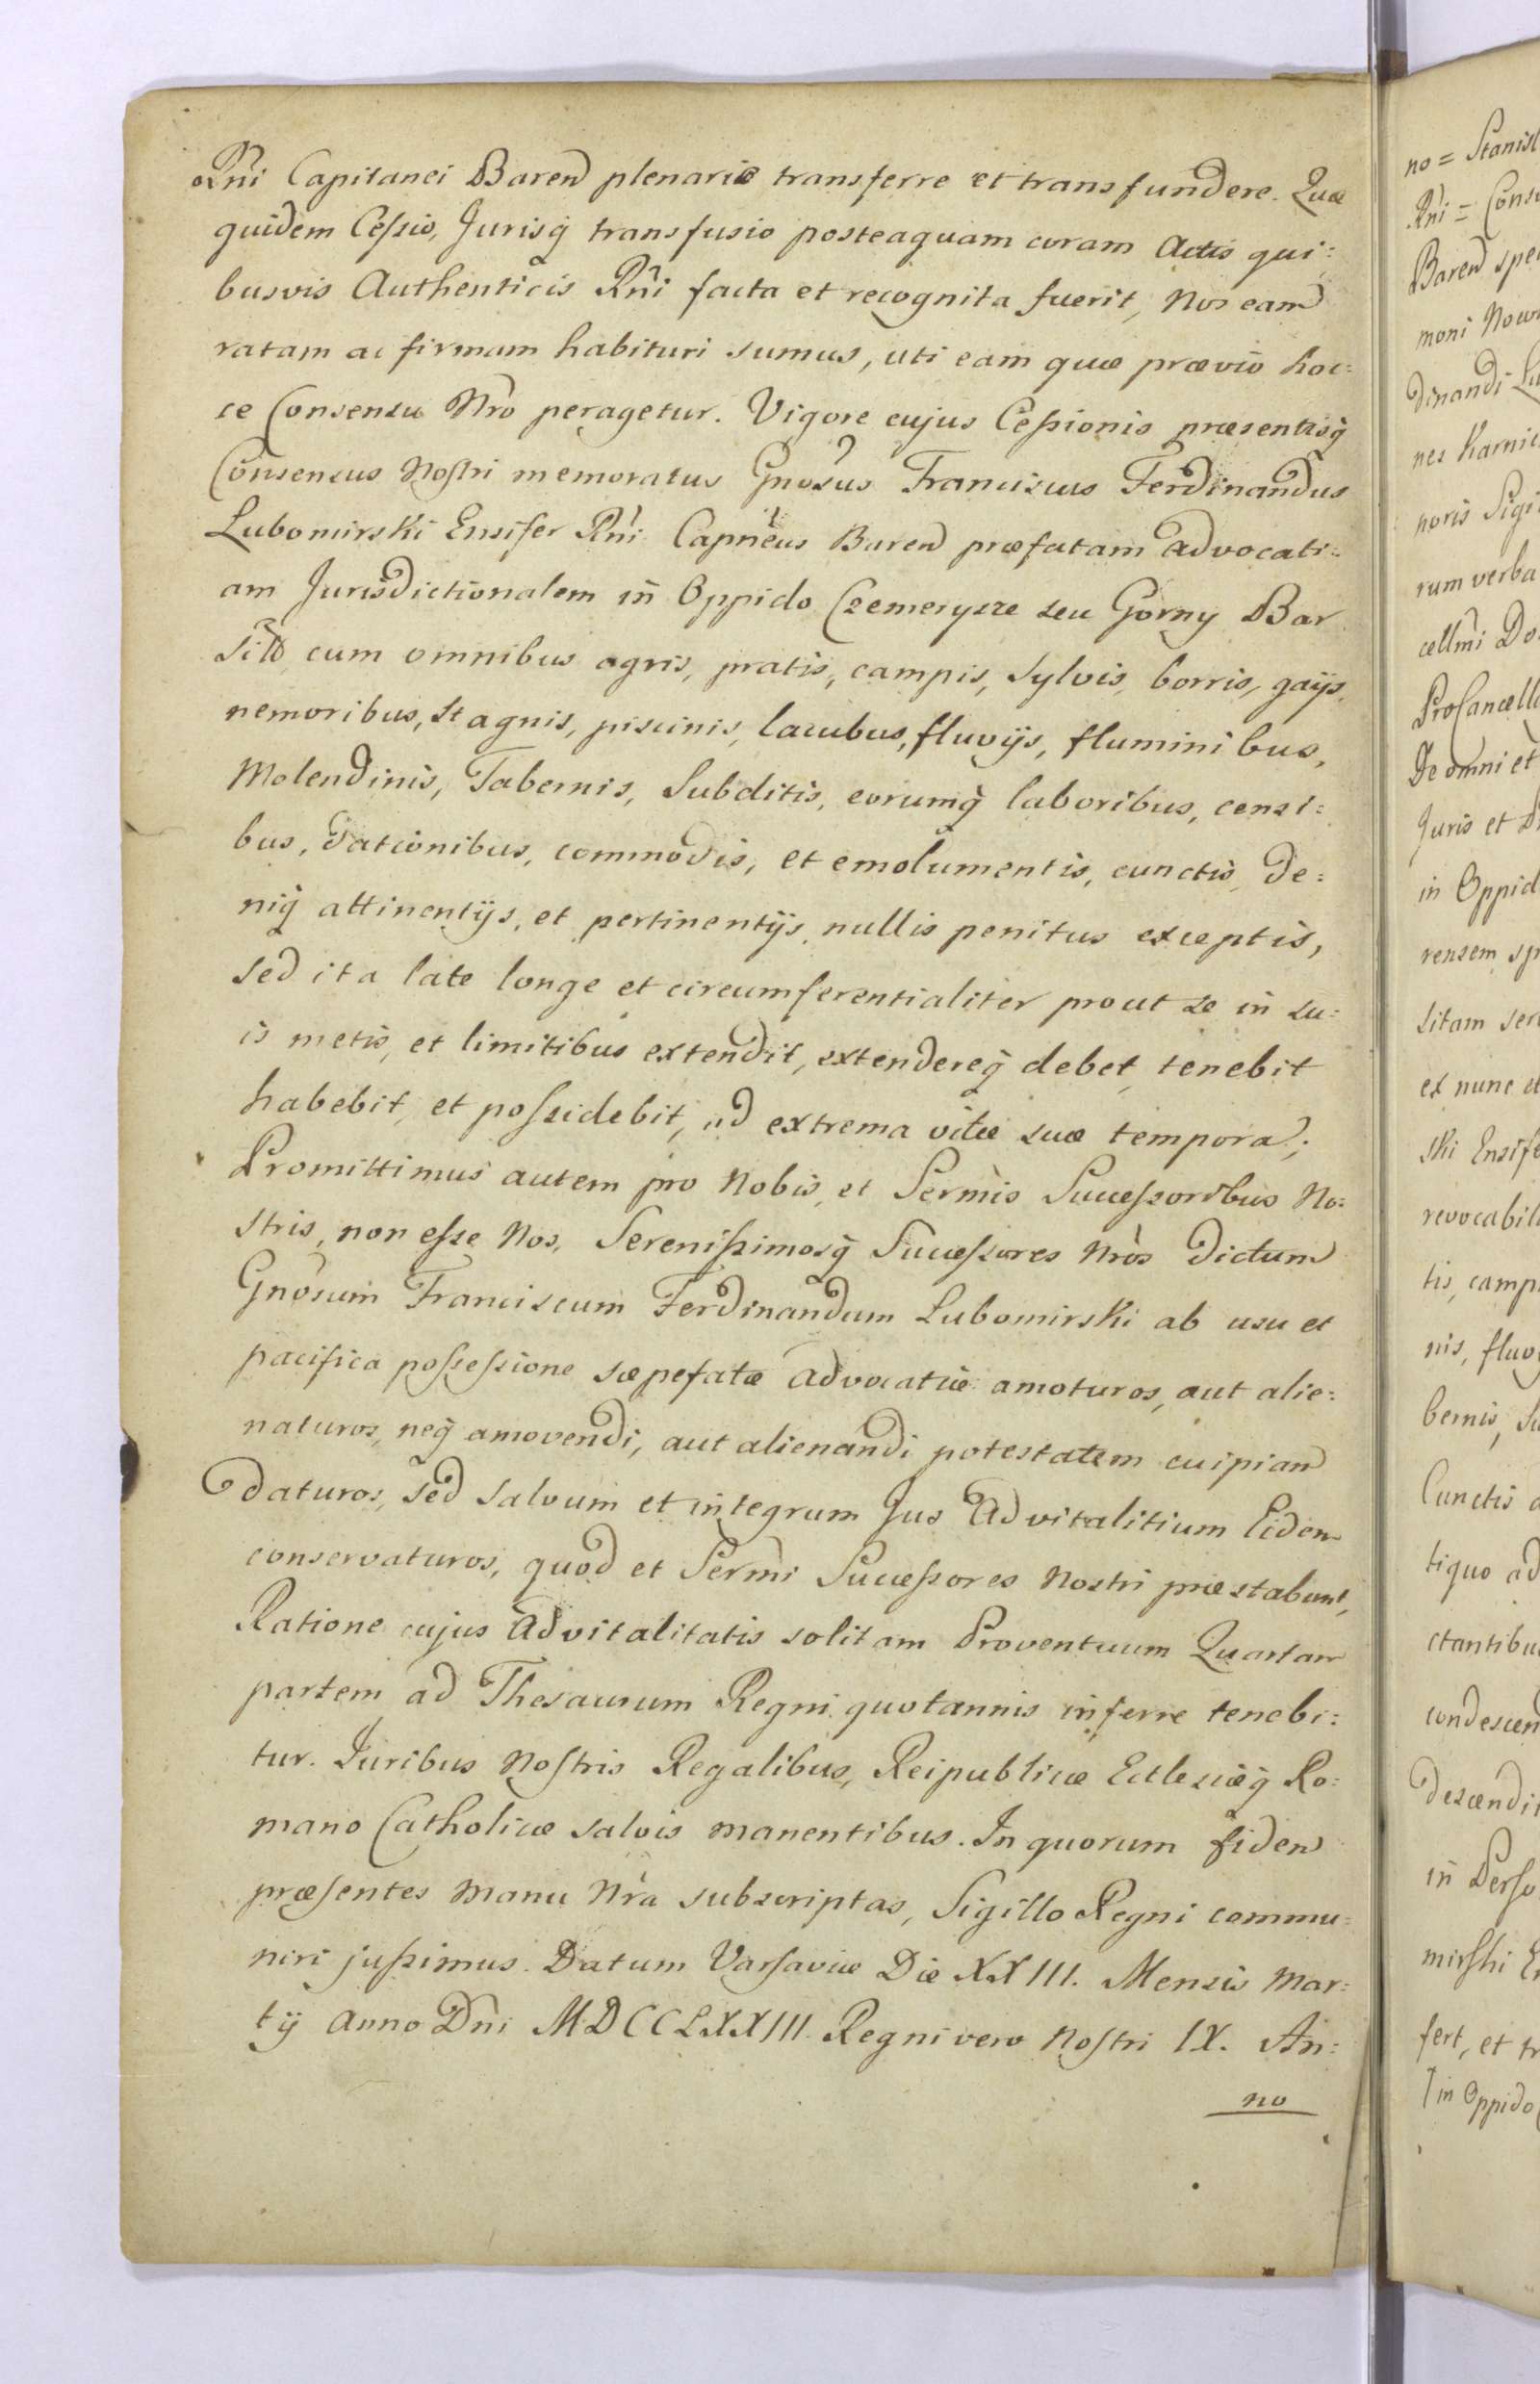 Rni Capitanei Baren plenarie transferre et transfundere. Quæ
quidem Cessio, Jurisq̀ transfusio posteaquam coram Actis qui:
busvis Authenticis Rni facta et recognita fuerit, Nos eam
ratam ac firmam habituri sumus, uti eam quæ prævio hoc:
ce Consensu Nrò peragetur. Vigore cujus Cessionis præsentisq̀
Consensus Nostri memoratus Gnosus Franciscus Ferdinandus
Lubomirski Ensifer Rni Capneus Baren præfatam advocati:
am Jurisdictionalem in Oppido Czemerysze seu Gorny Bar
sitt cum omnibus agris, pratis, campis, sylvis, borris, gaijs,
nemoribus, stagnis, piscinis, lacubus, fluvijs, fluminibus,
Molendinis, Tabernis, Subditis, eorumq̀ laboribus, censi:
bus, dationibus, commodis, et emolumentis, cunctis, de:
niq̀ attinentijs, et pertinentijs, nullis penitus exceptis,
sed ita late longe et circumferentialiter prout se in su:
is metis, et limitibus extendit, extendereq̀ debet, tenebit
habebit, et possidebit, ad extrema vitæ suæ tempora;
Promittimus autem pro Nobis, et Sermis Successoribus No:
stris, non esse Nos, Serenissimosq̀ Successores Nròs dictum
Gnosum Franciscum Ferdinandum Lubomirski ab usu et
pacifica possessione sæpefatæ advocatiæ amoturos, aut alie:
naturos, neq̀ amovendi, aut alienandi potestatem cuipiam
daturos, sed salvum et integrum Jus Advitalitium Eidem
conservaturos, quod et Sermi Successores Nostri præstabunt,
Ratione cujus Advitalitatis solitam Proventuum Quartam
partem ad Thesaurum Regni quotannis inferre tenebi:
tur. Juribus Nostris Regalibus, Reipublicæ Ecclesiæq̀ Ro:
mano Catholicæ salvis manentibus. In quorum fidem
præsentes manu Nrà subscriptas, Sigillo Regni commu:
niri jussimus. Datum Varsaviæ Die XXIII. Mensis Mar:
tij Anno Dni MDCCLXXIII. Regni vero Nostri IX. An:
no
no = Stanisl
Rni = Cons
Baren spe
moni Now
dinandi Lu
nes Karnic
noris Sigi
rum verba
cellmi Do
ProCancella
De omni et
Juris et D
in Oppid
rensem sp
sitam ser
ex nunc et
ski Ensife
revocabil
tis, camp
nis, fluv
bernis, Su
Cunctis a
tiquo ad
ctantibu
condescen
descendi
in Perso
mirski E
fert, et tr
in Oppido